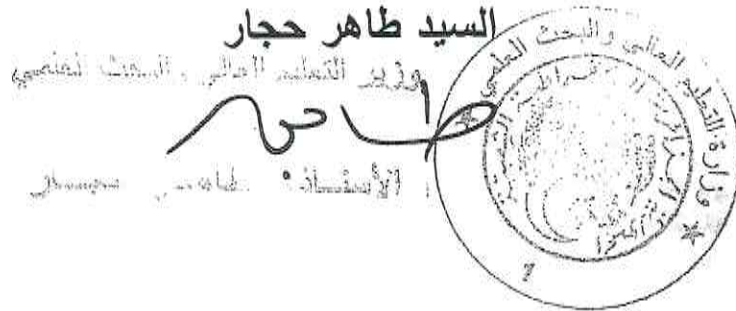 السيد طاهر حجار
وزير التعليم العالي والبحث العلمي
الأستاذ: طاهر حجار
وزارة التعليم العالي والبحث العلمي
الجمهورية الجزائرية الديمقراطية الشعبية
1